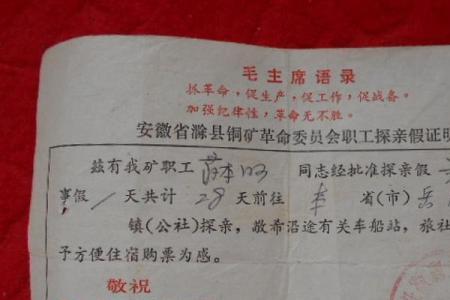 毛主席语录
抓革命，促生产，促工作，促战备。
加强纪律性，革命无不胜。
安徽省滁县铜矿革命委员会职工探亲假证明
兹有我矿职工 同志经批准探亲假
事假 天共计28天前往 省(市)
镇(公社)探亲，敬希沿途有关车船站，旅社
予方便住宿购票为感。
敬祝